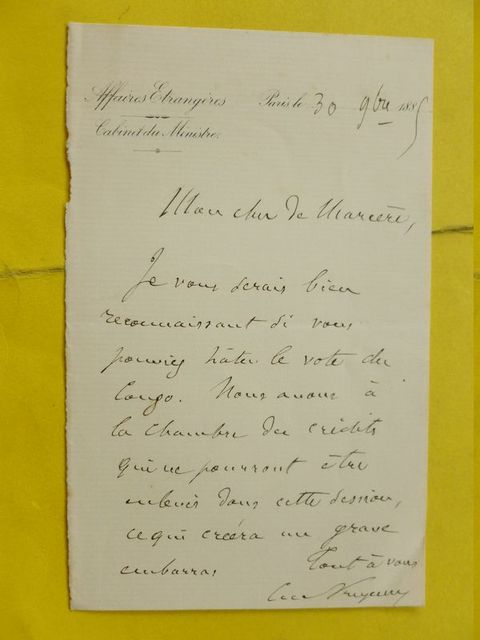 Affaires Etrangères
Paris le 30 9bre 1885
Cabinet du Ministre
Mon cher de Marcère,
Je vous serais bien
reconnaissant si vous
pouviez hâter le vote du
Congo. Nous avons à
la chambre des crédits
qui ne pourront être
enlevés dans cette session,
ce qui créera un grave
embarras
Tout à vous